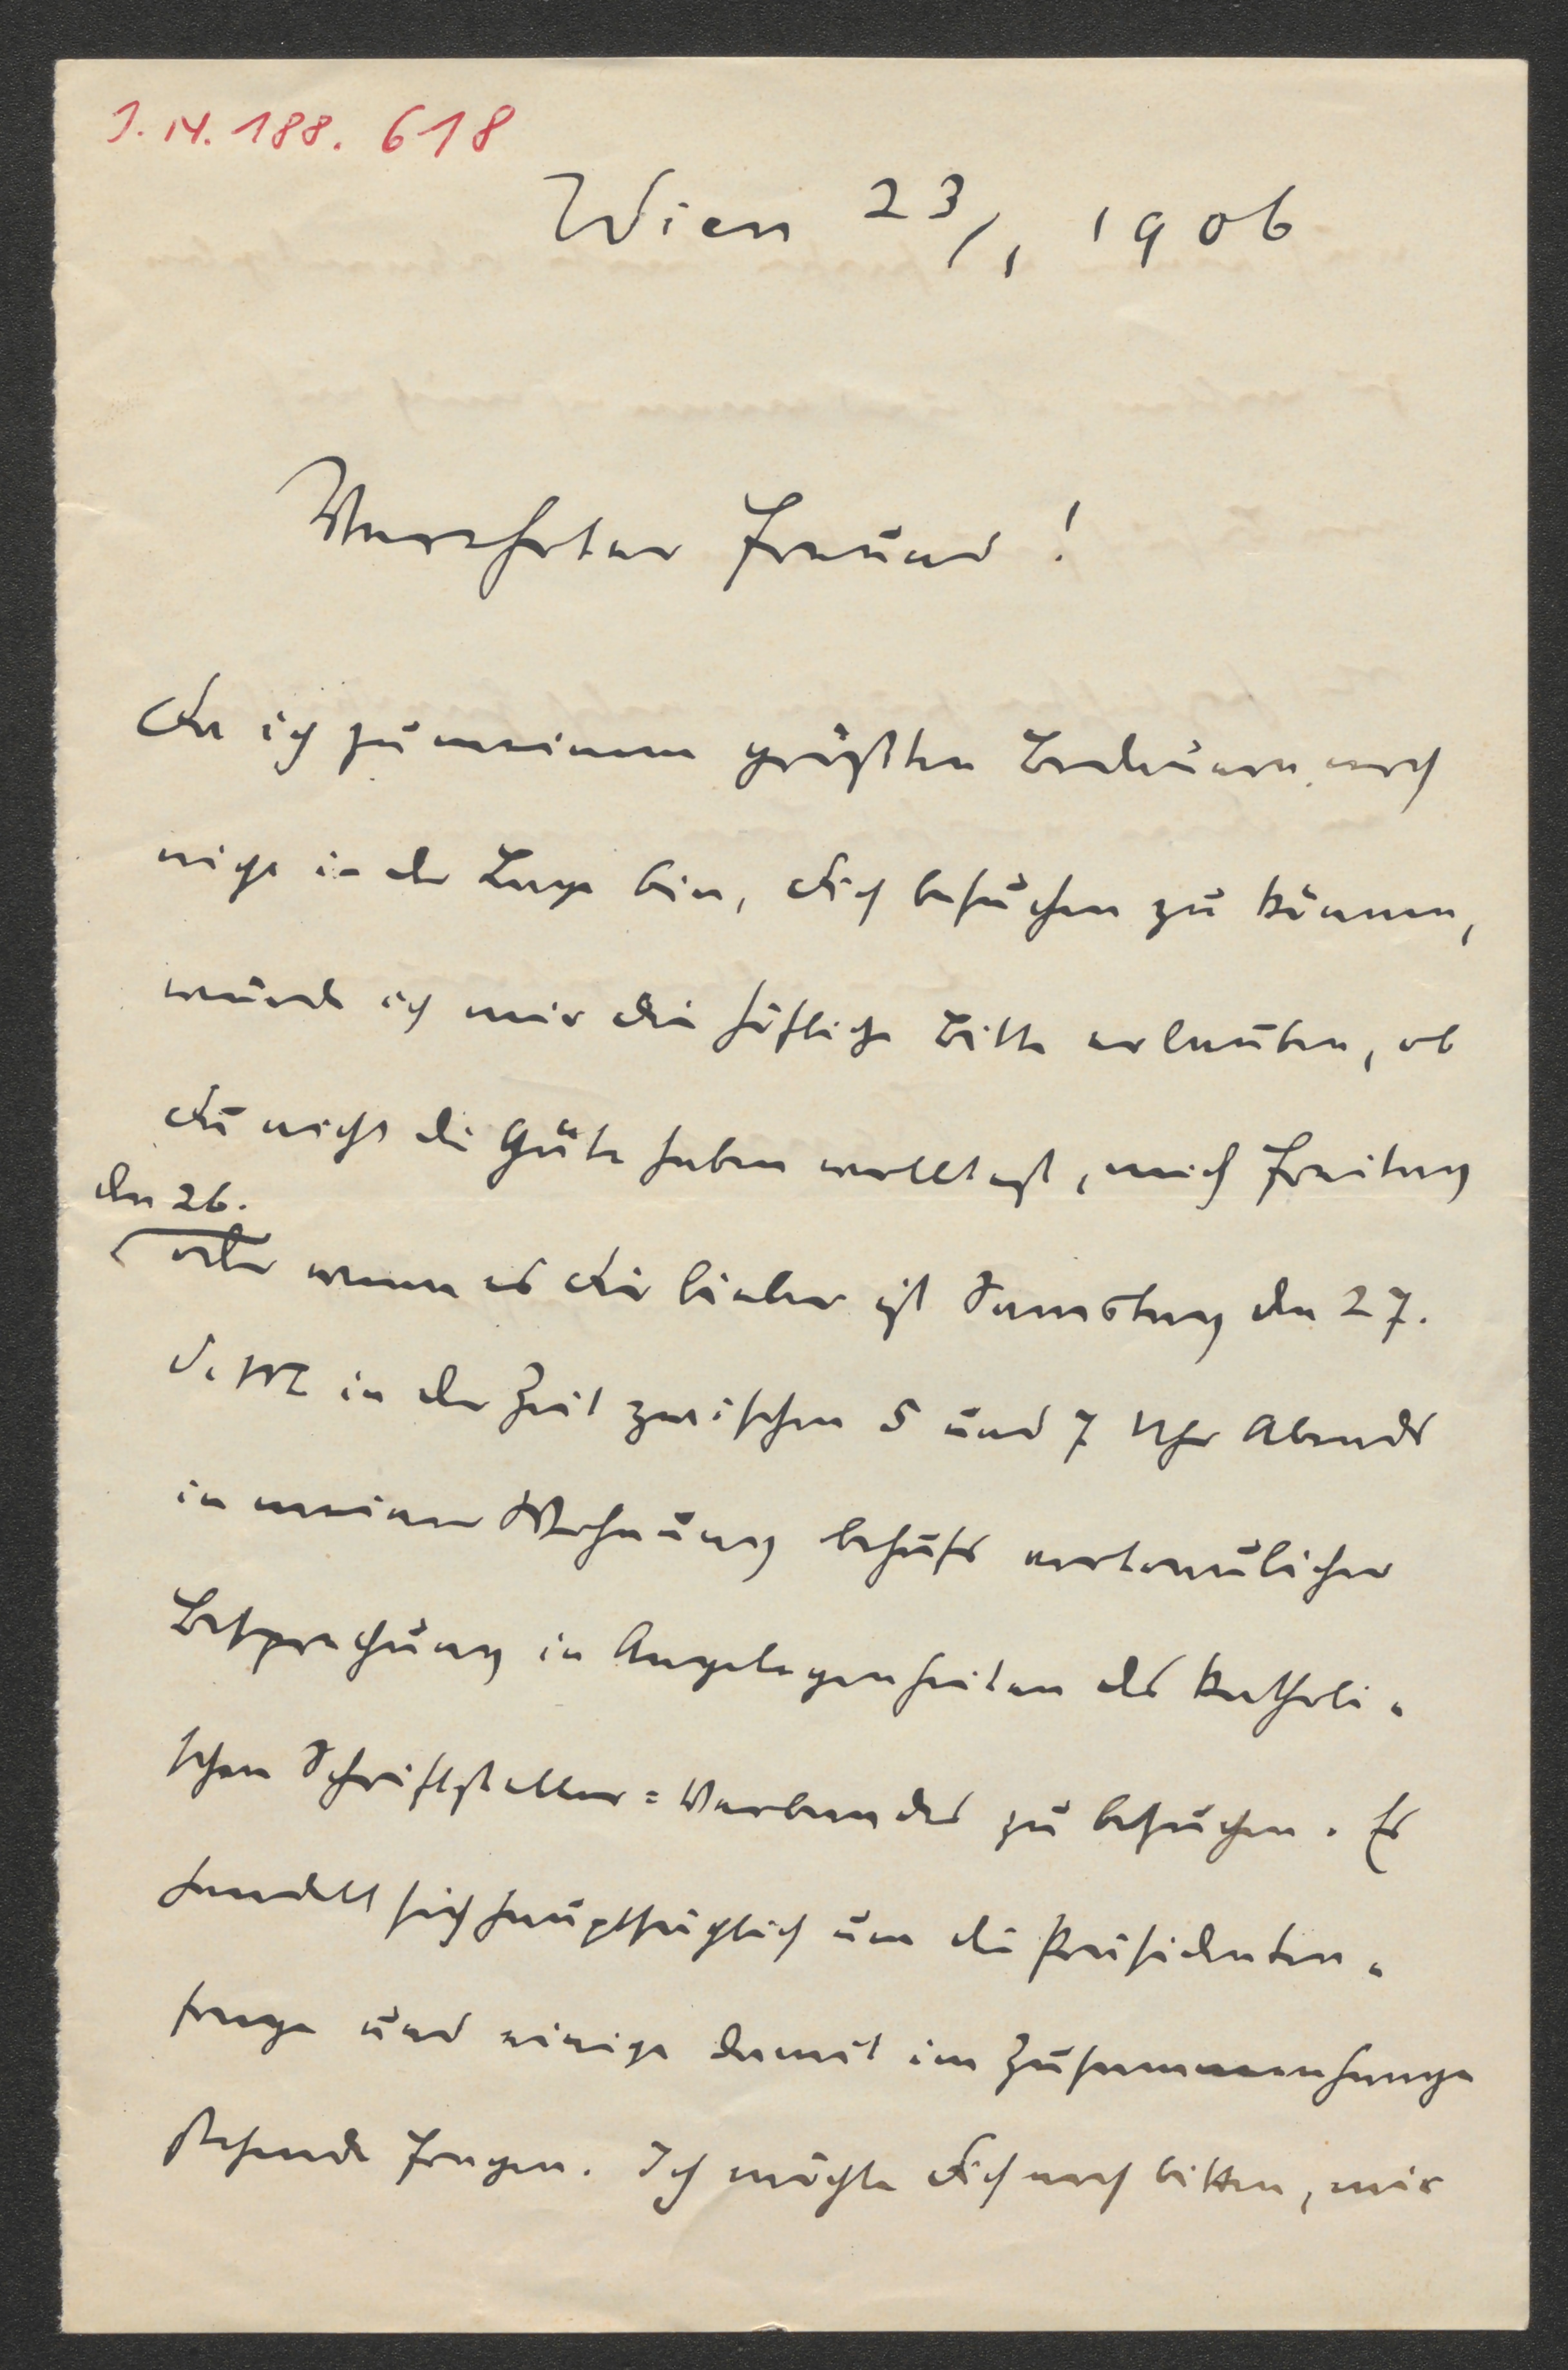 I.N. 188.618
Wien 23/1 1906
Verehrter Freund!
Da ich zu meinem größten Bedauern noch
nicht in der Lage bin, Dich besuchen zu können,
würde ich mir die höfliche Bitte erlauben, ob
Du nicht die Güte haben wolltest, mich Freitag
den 26.
oder wenn es Dir lieber ist Samstag den 27.
d. M. in der Zeit zwischen 5 und 7 Uhr Abends
in meiner Wohnung behufs vertraulicher
Besprechung in Angelegenheiten des katholi-
schen Schriftsteller=Verbandes zu besuchen. Es
handelt sich hauptsächlich um die Präsidenten-
frage und einige damit im Zusammenhange
stehende Fragen. Ich möchte Dich noch bitten, mir